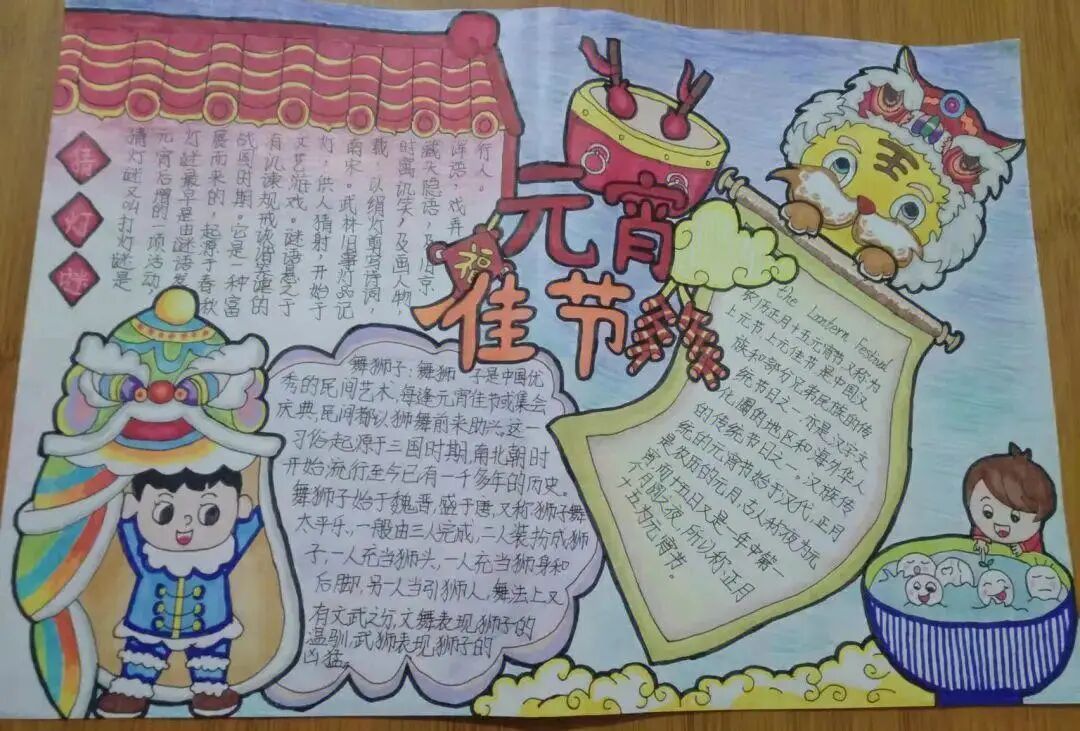 元宵
佳节
福
猜
灯
谜
猜灯谜又叫打灯谜是
元宵后增的一项活动
灯谜最早是由谜语发
展而来的,起源于春秋
战国时期。它是一种富
有讥谏规戒诙谐笑谑的
文艺游戏。谜语悬之于
灯,供人猜射,开始于
南宋。武林旧事灯品记
载,以绢灯剪写诗词,
时寓讥笑,及画人物,
藏头隐语,及旧京
诨语,戏弄
行人。
舞狮子:舞狮子是中国优
秀的民间艺术,每逢元宵佳节或集会
庆典,民间都以狮舞前来助兴。这一
习俗起源于三国时期,南北朝时
开始流行至今已有一千多年的历史。
舞狮子始于魏晋,盛于唐,又称狮子舞
太平乐,一般由三人完成,二人装扮成狮
子,一人充当狮头,一人充当狮身和
后脚,另一人当引狮人,舞法上又
有文武之分,文舞表现狮子的
温驯,武狮表现狮子的
凶猛。
王
the Lantern Festival
农历正月十五元宵节,又称为
上元节上元佳节,是中国汉
族和部分兄弟民族的传
统节日之一,亦是汉字文
化圈的地区和海外华人
的传统节日之一。汉族传
统的元宵节始于汉代,正月
是农历的元月,古人称夜为元
宵,而十五日又是一年中第一
个月圆之夜,所以称正月
十五为元宵节。